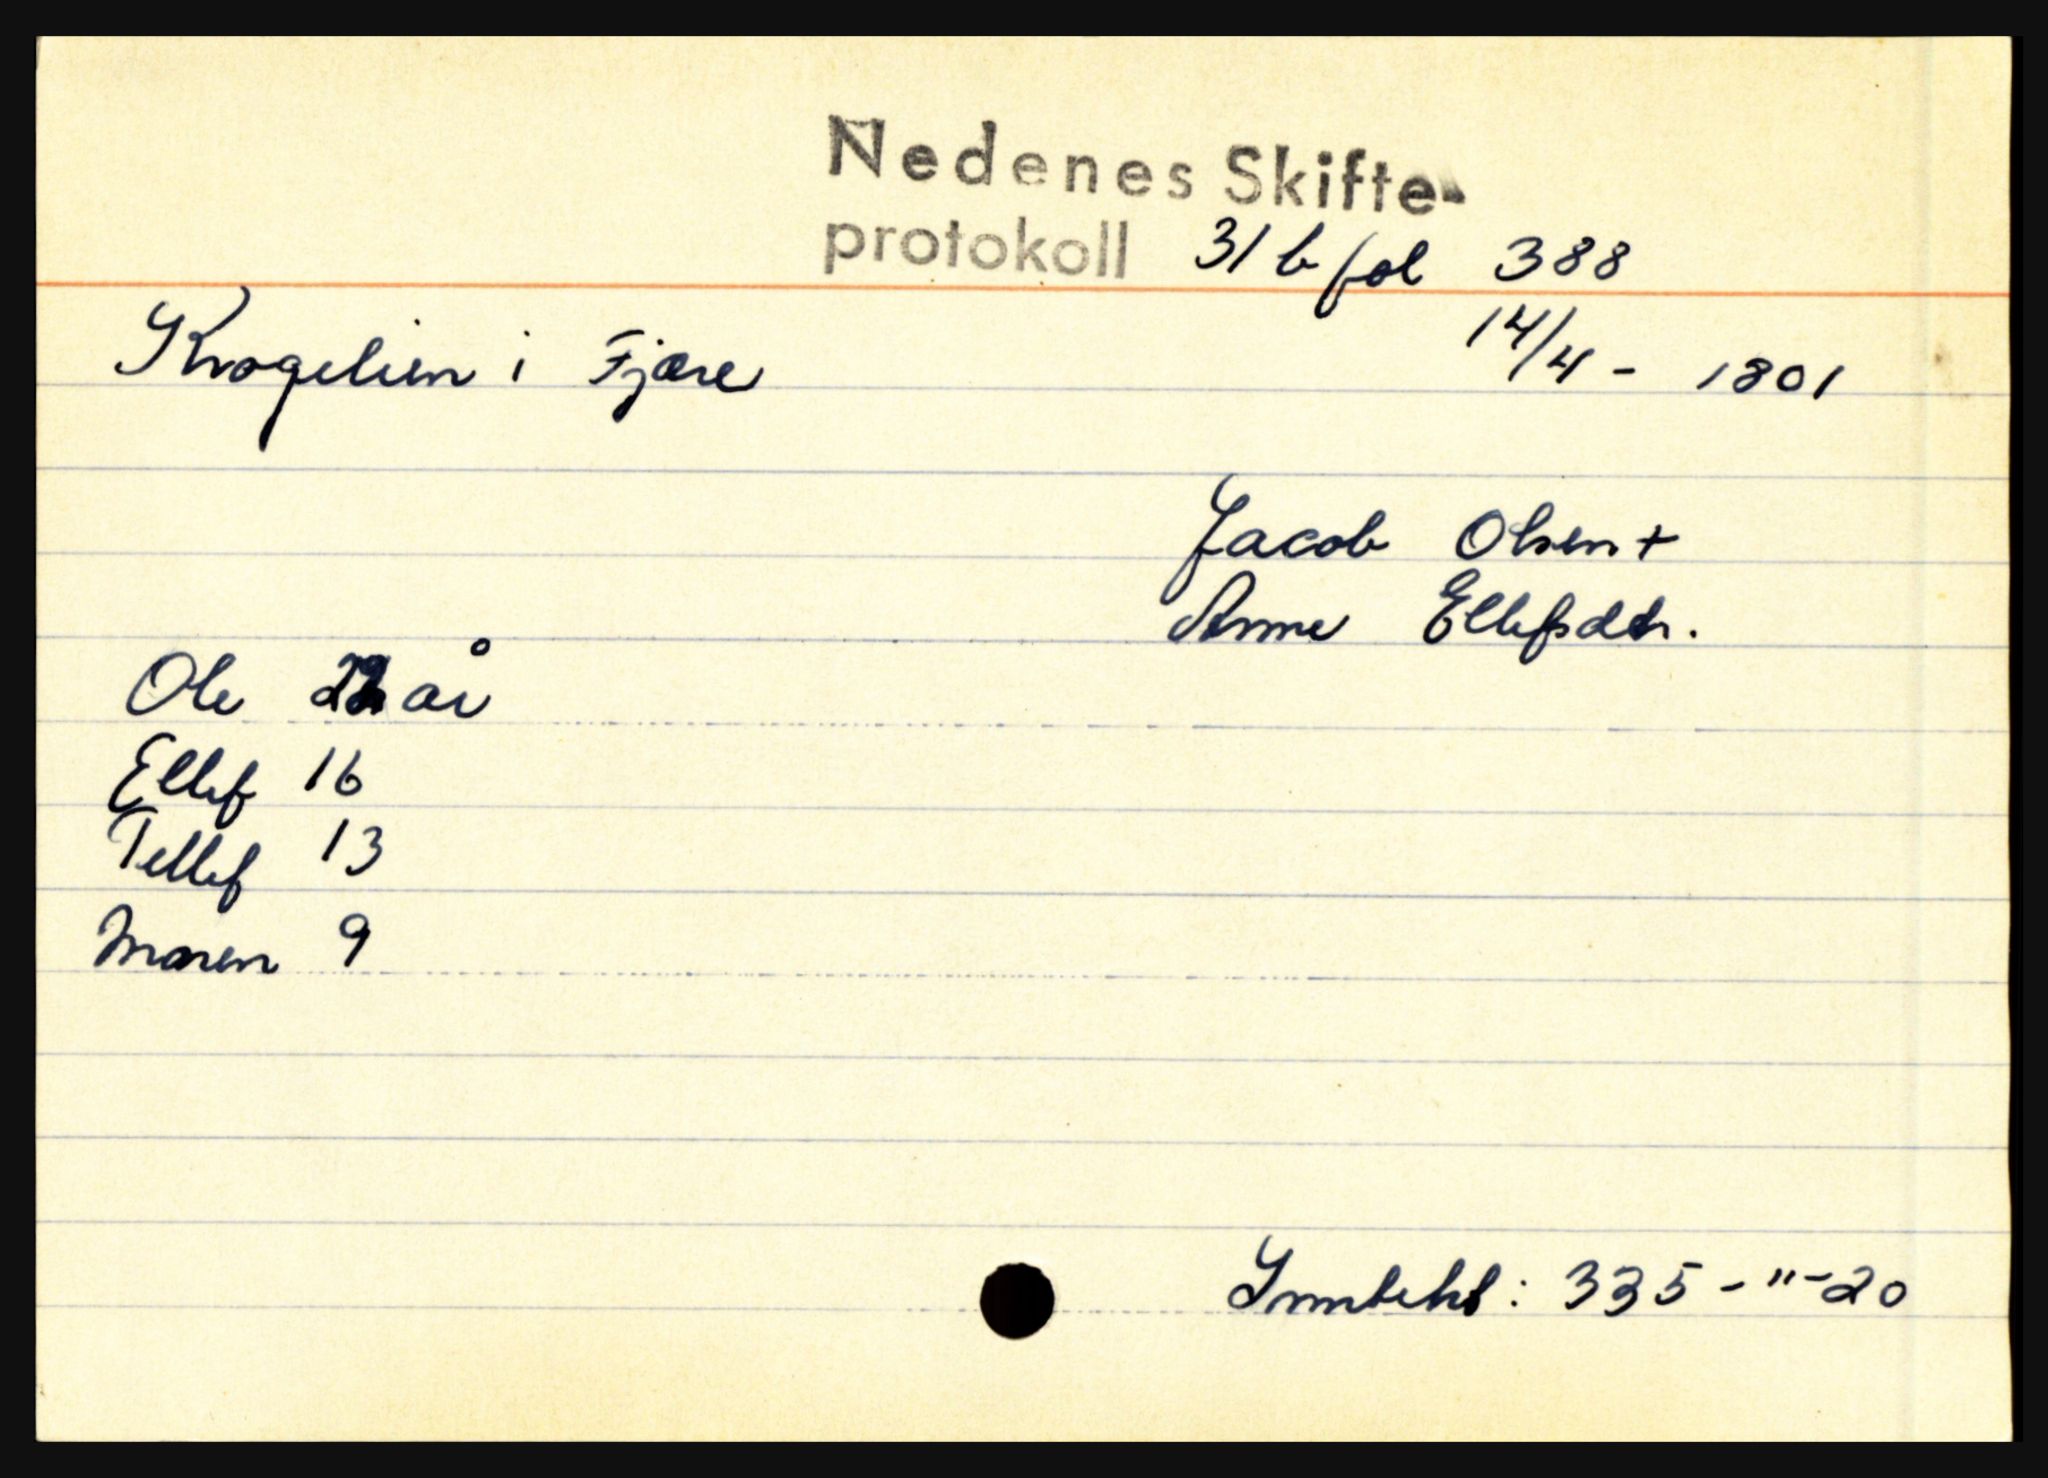 Nedenes Skifte-
protokoll 31 b fol 388
14/4 - 1801
Krogelien i Fjære
Jacob Olsen +
Anne Ellefsdtr.
Ole år
Ellef 16
Tellef 13
Maren 9
: 335 - " - 20